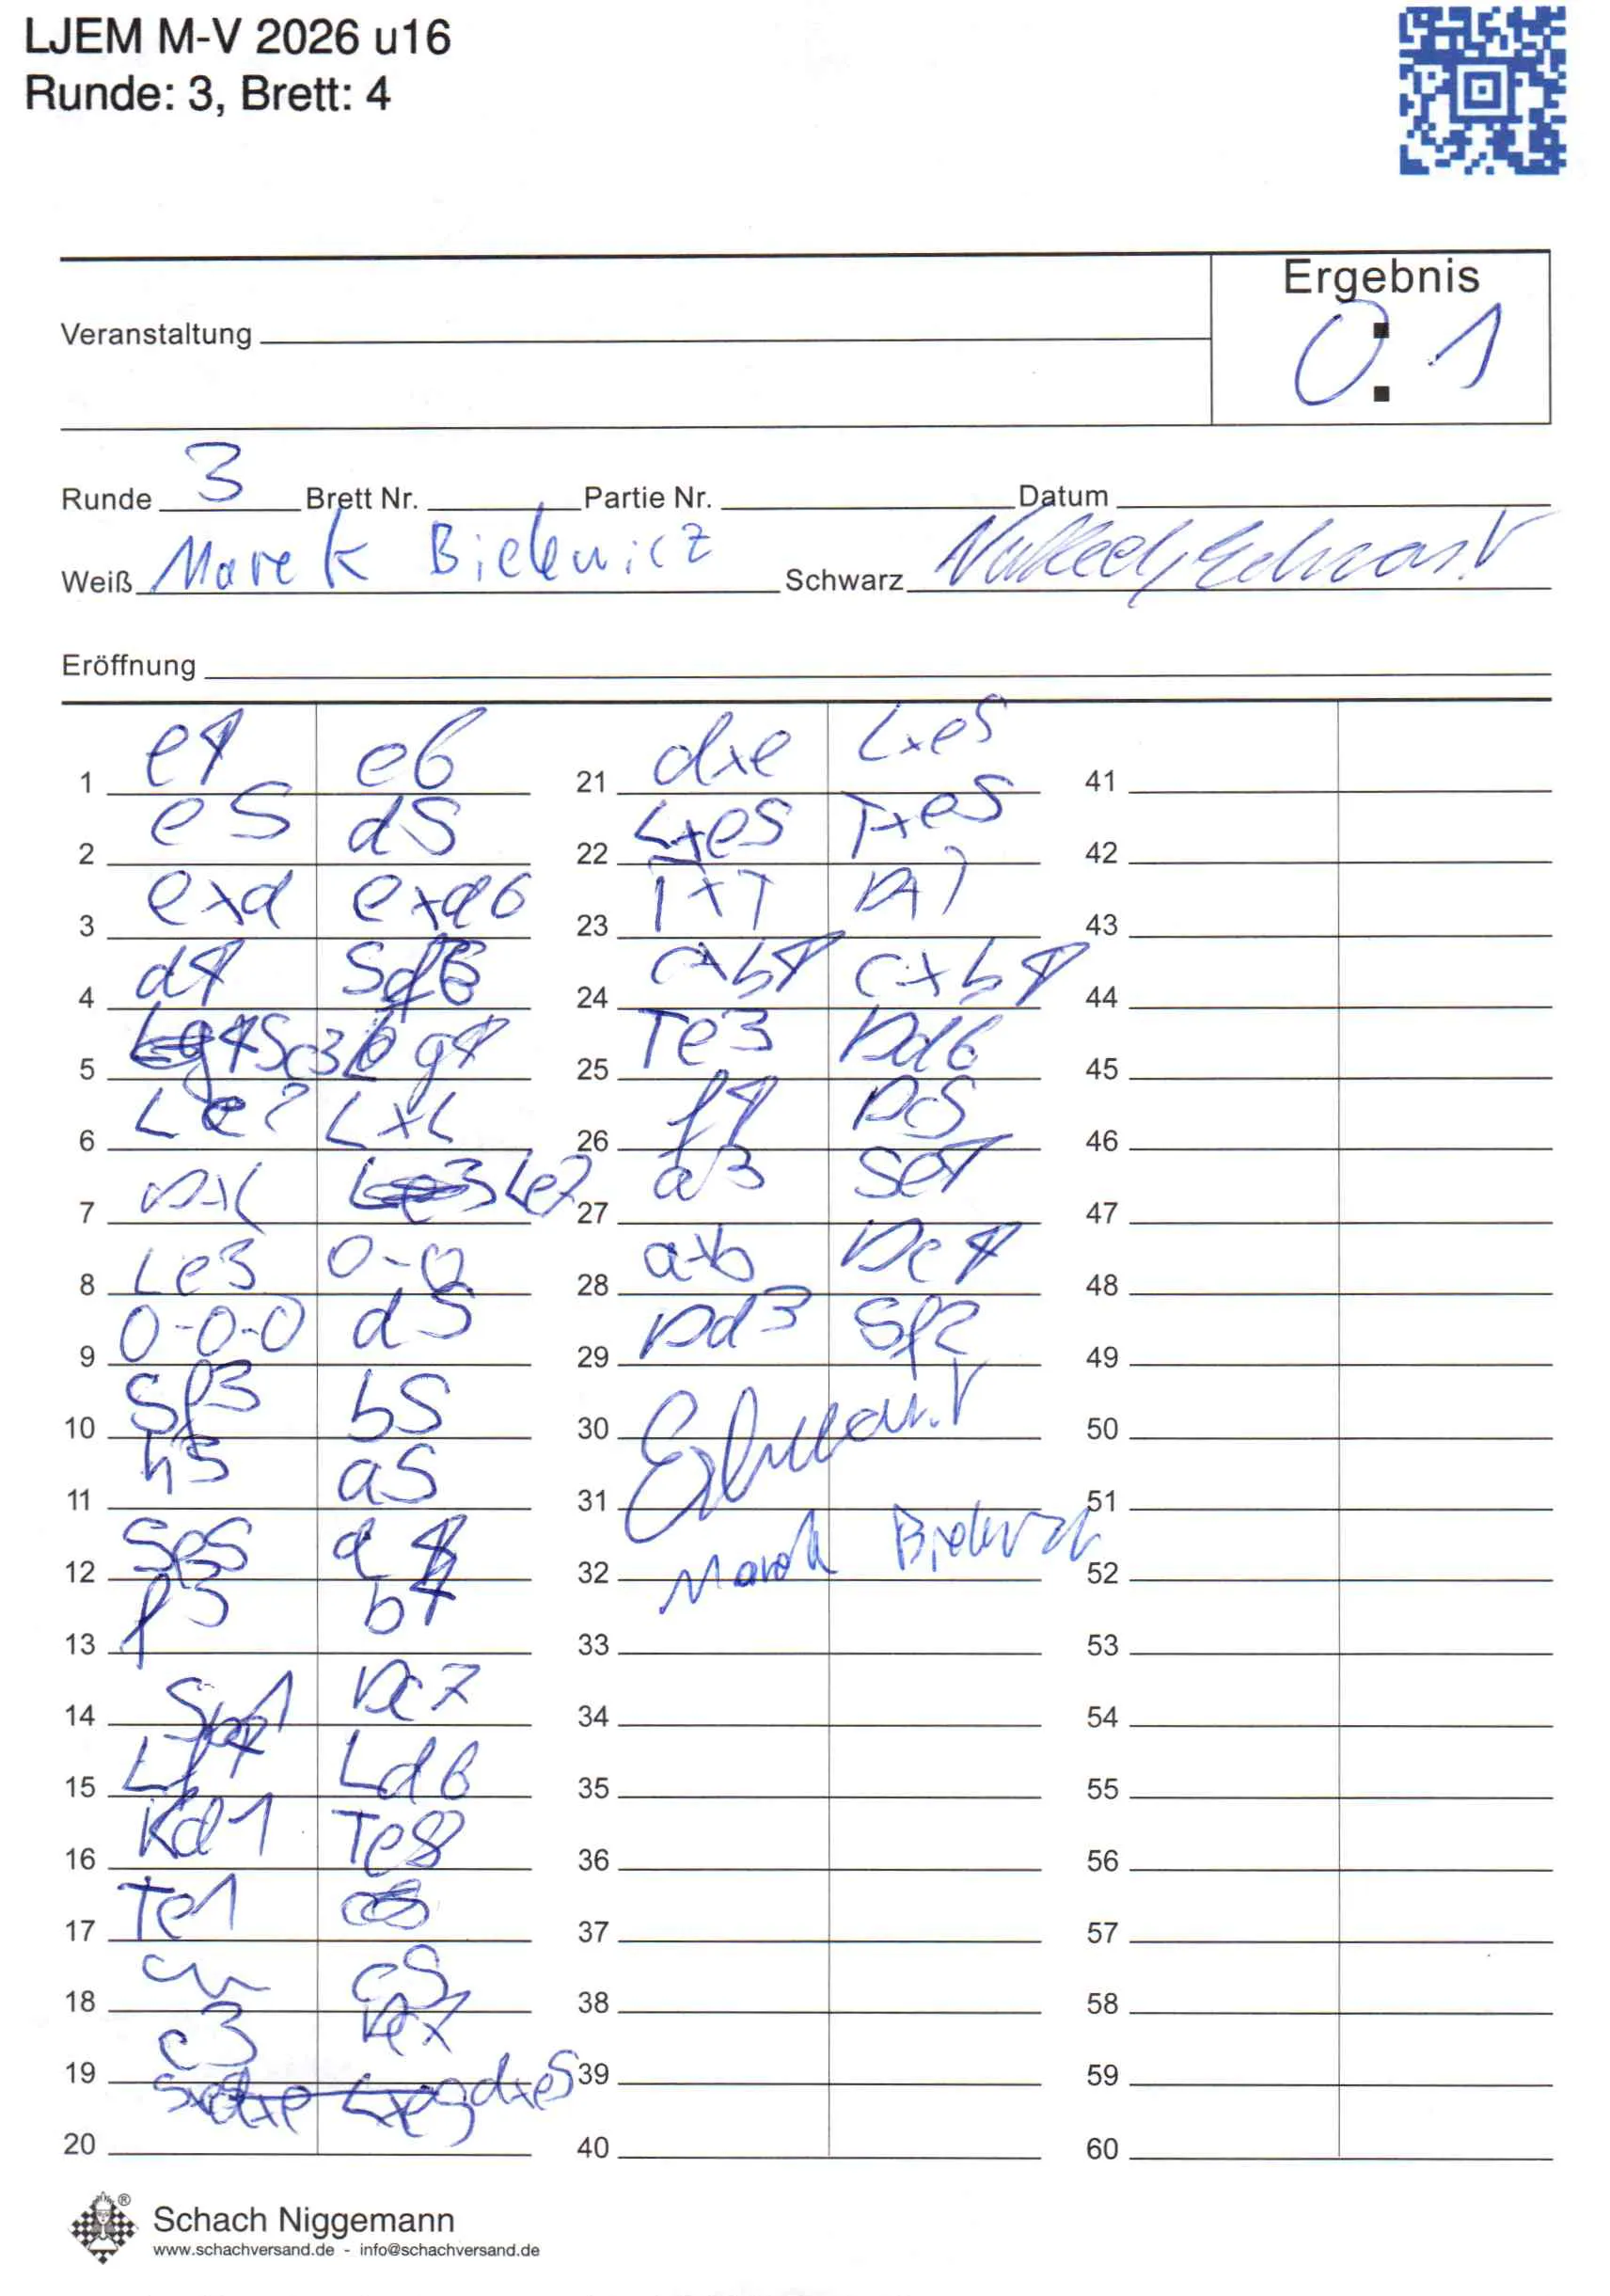 LJEM M-V 2026 u16
Runde: 3, Brett: 4
Ergebnis
0:1
Veranstaltung
Runde 3 Brett Nr. Partie Nr. Datum
Weiß Marek Bielewicz Schwarz
Eröffnung
1 e4 e6
2 e5 d5
3 exd exd6
4 d4 Sf6
5 Sc3 Lg4
6 Le2 LxL
7 DxL Le7
8 Le3 0-0
9 0-0-0 d5
10 Sf3 b5
11 h3 a5
12 Se5 a4
13 f3 b4
14 Sb1 Dc7
15 Lf4 Ld6
16 Kd1 Te8
17 Te1
18 c5
19 c3
20 dxe5
21 dxe Lxe5
22 Lxe5 Txe5
23 TxT
24 cxb4 cxb4
25 Te3 Dd6
26 f4 Dc5
27 a3 Se4
28 axb Dc4
29 Dd3 Sf2
30
31
32 Marek
33
34
35
36
37
38
39
40
41
42
43
44
45
46
47
48
49
50
51
52
53
54
55
56
57
58
59
60
Schach Niggemann
www.schachversand.de - info@schachversand.de